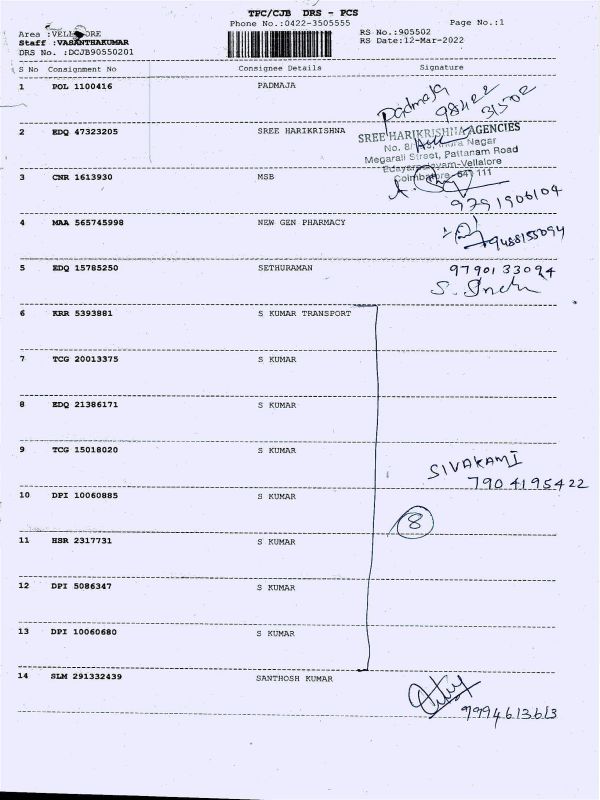 TPC/CJB DRS - PCS
Phone No.:0422-3505555 Page No.:1
Area :VELLORE RS No.:905502
Staff :VASANTHAKUMAR RS Date:12-Mar-2022
DRS No. :DCJB90550201
S No Consignment No Consignee Details Signature
1 POL 1100416 PADMAJA
Padmaja
98422
31502
2 EDQ 47323205 SREE HARIKRISHNA
SREE HARIKRISHNA AGENCIES
Nagar
Megarali Street, Pattanam Road
-Vellalore
Coimbatore 641 111
3 CNR 1613930 MSB
9791906104
4 MAA 565745998 NEW GEN PHARMACY
9488155094
5 EDQ 15785250 SETHURAMAN 9790133094
S.
6 KRR 5393881 S KUMAR TRANSPORT
7 TCG 20013375 S KUMAR
8 EDQ 21386171 S KUMAR
9 TCG 15018020 S KUMAR
SIVAKAMI
7904195422
10 DPI 10060885 S KUMAR
8
11 HSR 2317731 S KUMAR
12 DPI 5086347 S KUMAR
13 DPI 10060680 S KUMAR
14 SLM 291332439 SANTHOSH KUMAR
9994613613